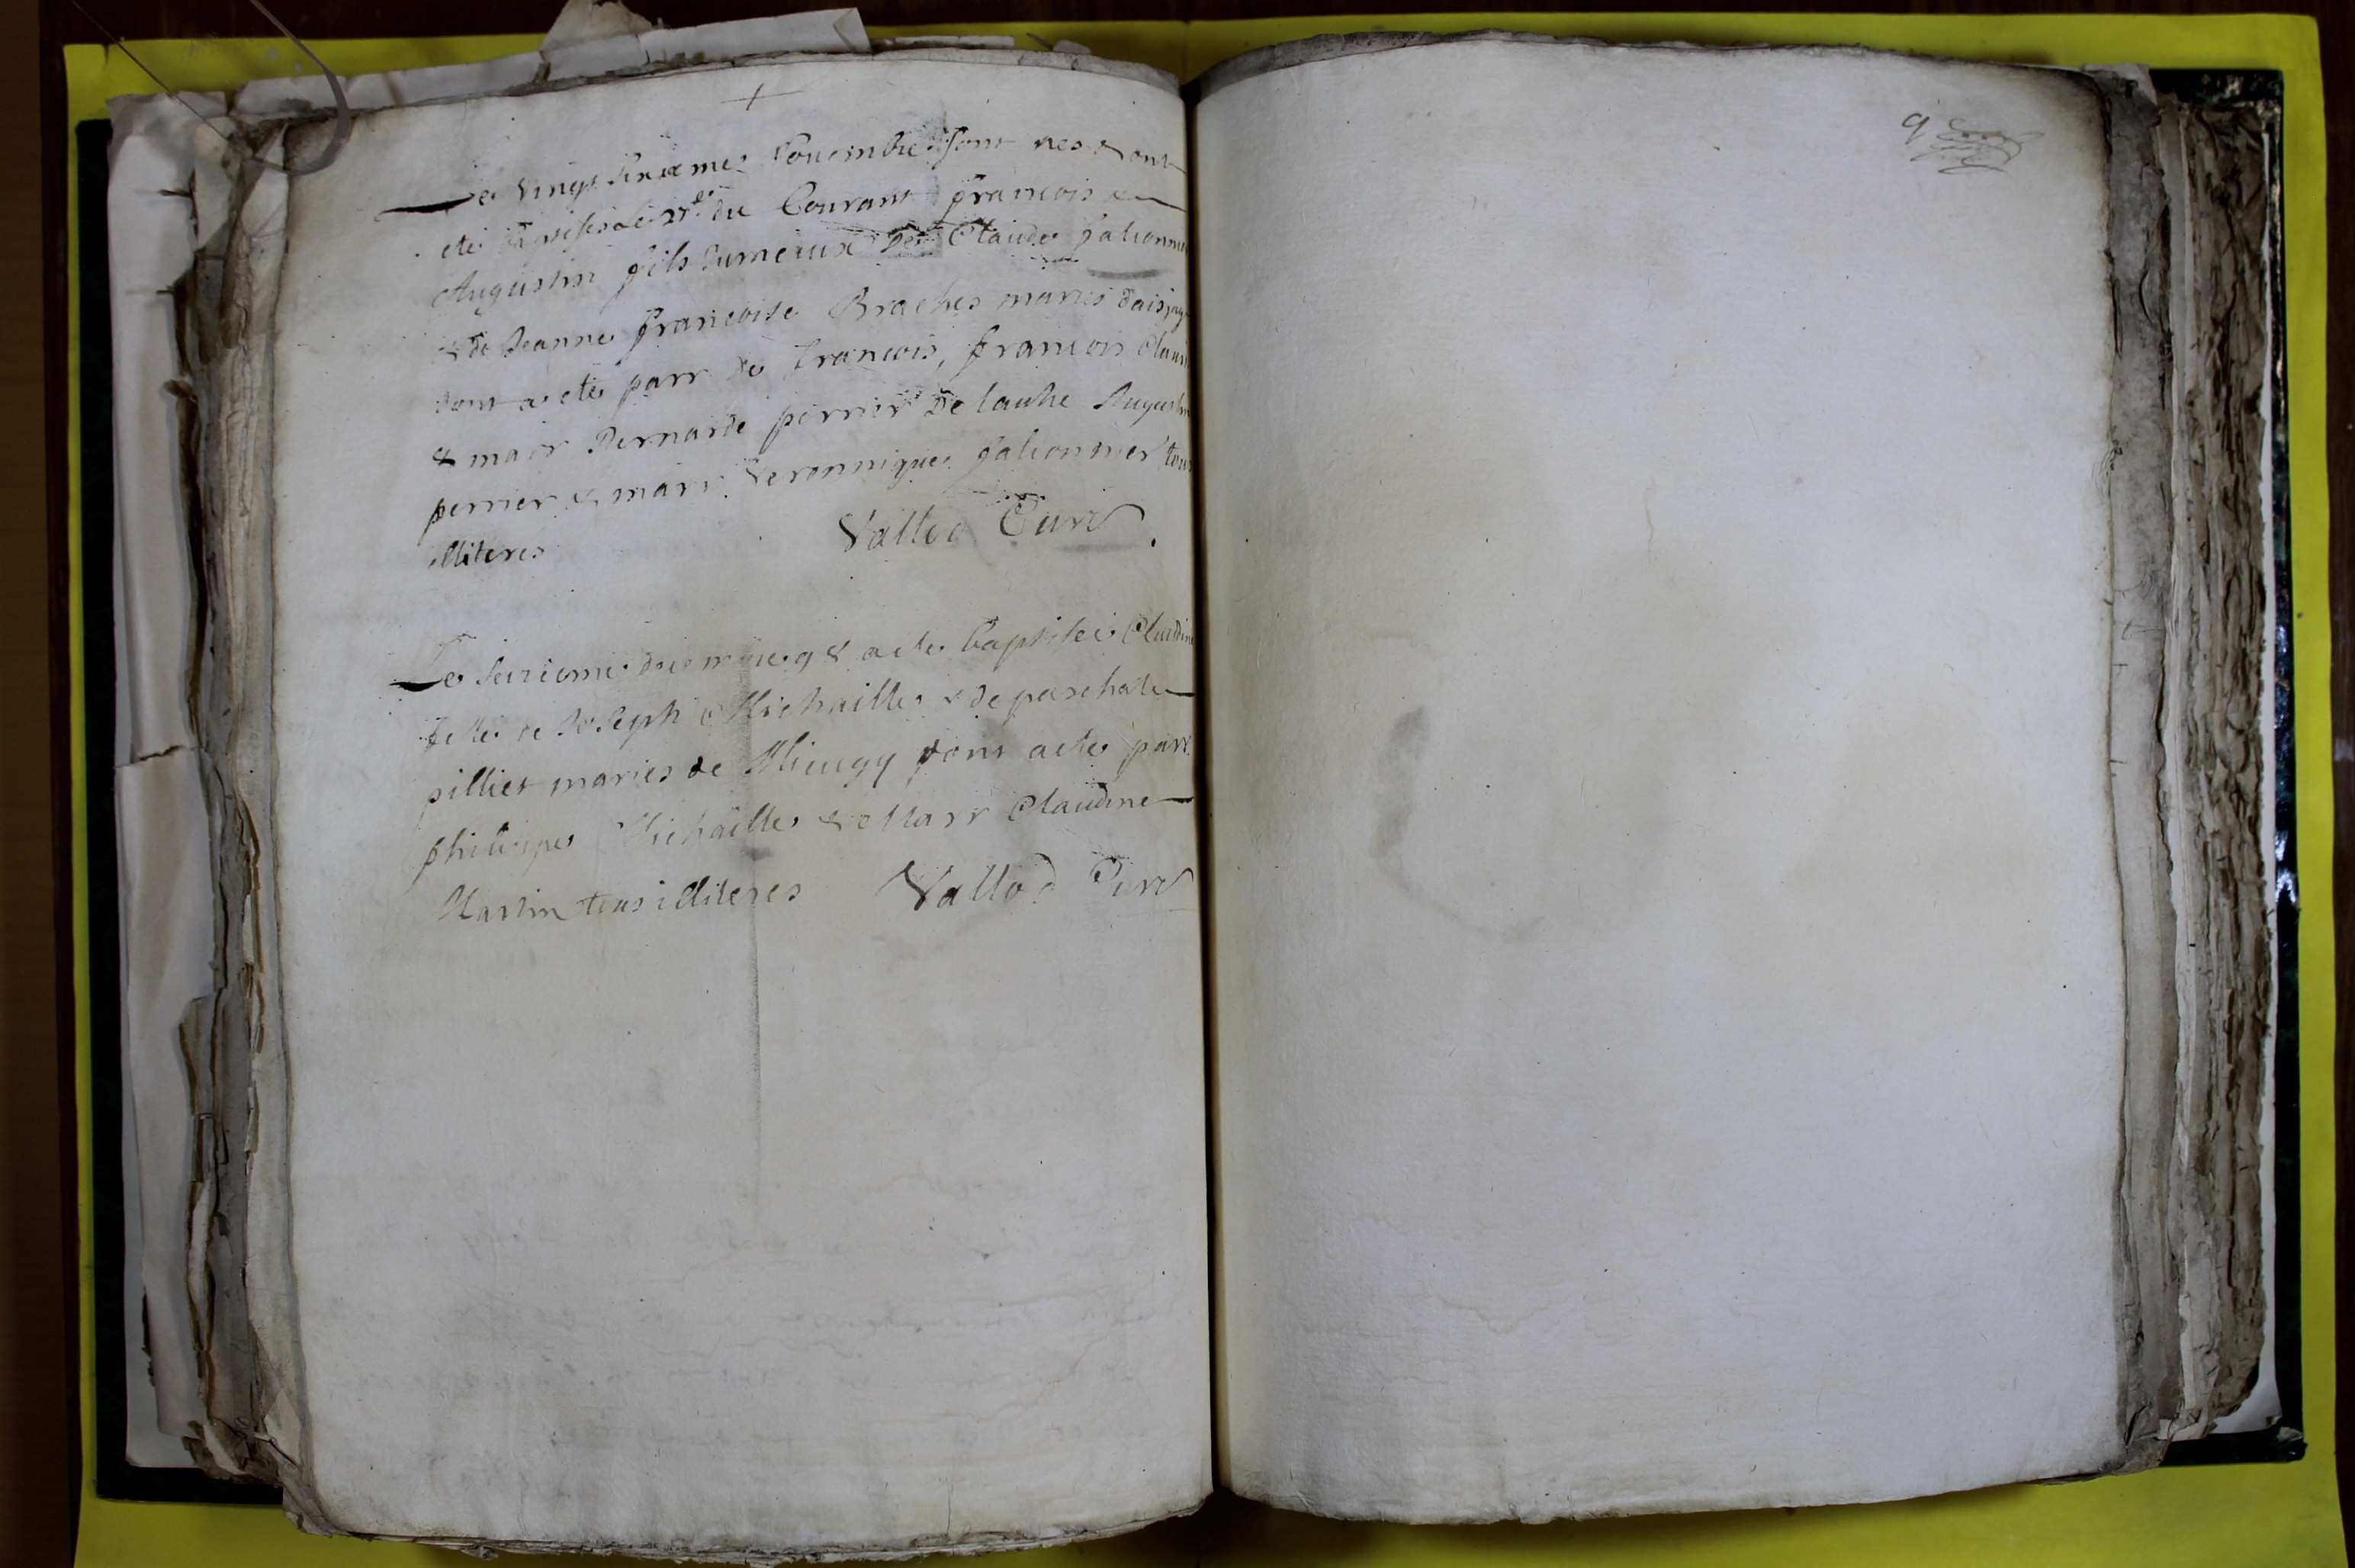 Le vingt sixieme novembre sont nes & ont
eté baptises le 27e du Courant francois &
Augustin fils jumeaux de Claude falconnie
& de Jeanne francoise Braches maries
dont a eté parr de francois, francois Claude
& marr Bernarde perrier de lautre Augustin
perrier & marr. Veronnique falconnier tous
illiteres Vallod Curé
Le seizieme a eté baptisée Claudine
fille de Joseph Michaille & de paschale
pilliet maries de dont a eté parr.
philippe Michaille & Marr Claudine
Martin tous illiteres Vallod Curé
9